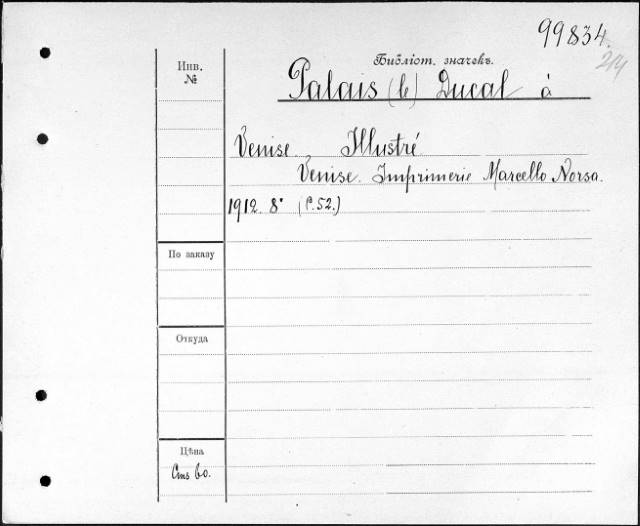 99834.
214
Библіот. значекъ.
Инв.
№
Palais (le) Ducal à
Venise. Illustré.
Venise. Imprimerie Marcello Norsa.
1912. 8° (P.52.)
По заказу
Откуда
Цѣна